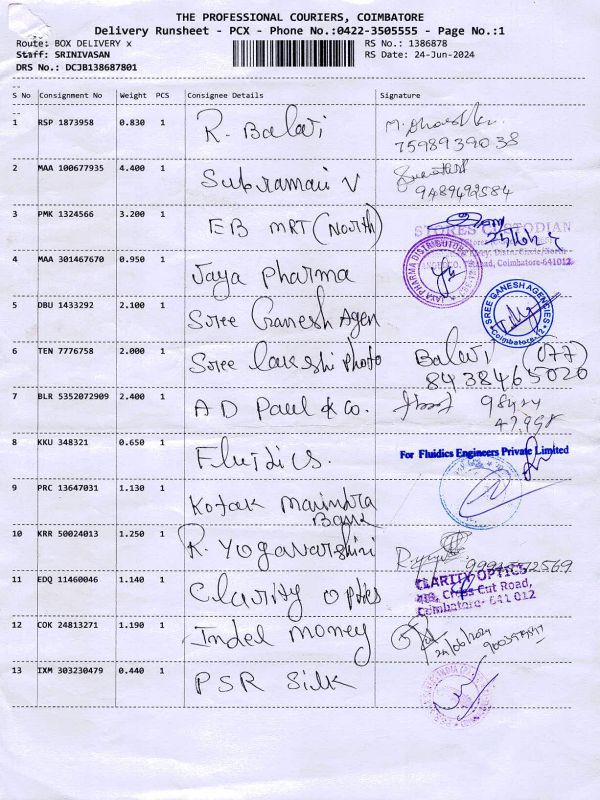 THE PROFESSIONAL COURIERS, COIMBATORE
Delivery Runsheet - PCX - Phone No.:0422-3505555 - Page No.:1
Route: BOX DELIVERY x RS No.: 1386878
Staff: SRINIVASAN RS Date: 24-Jun-2024
DRS No.: DCJB138687801
S No Consignment No Weight PCS Consignee Details Signature
1 RSP 1873958 0.830 1 R. Balaji
7598939038
2 MAA 100677935 4.400 1 Subramani V
9489492584
3 PMK 1324566 3.200 1 EB MRT (North)
STORES CUSTODIAN
Coimbatore-641012
4 MAA 301467670 0.950 1 Jaya Pharma
JAYA PHARMA DISTRIBUTORS
5 DBU 1433292 2.100 1 Sree Ganesh Agen
SREE GANESH AGENCIES
Coimbatore-12
6 TEN 7776758 2.000 1 Sree lakshi Photo Balaji (077)
8438465020
7 BLR 5352072909 2.400 1 A D Paul & Co.
8 KKU 348321 0.650 1 Fluidics.
For Fluidics Engineers Private Limited
9 PRC 13647031 1.130 1 Kotak Mahindra
Bank
10 KRR 50024013 1.250 1 R. Yogavarshini
11 EDQ 11460046 1.140 1 Clarity optics
CLARITY OPTICS
Cross Cut Road,
Coimbatore- 641 012
12 COK 24813271 1.190 1 Indel money
24/06/2024
13 IXM 303230479 0.440 1 PSR Silk